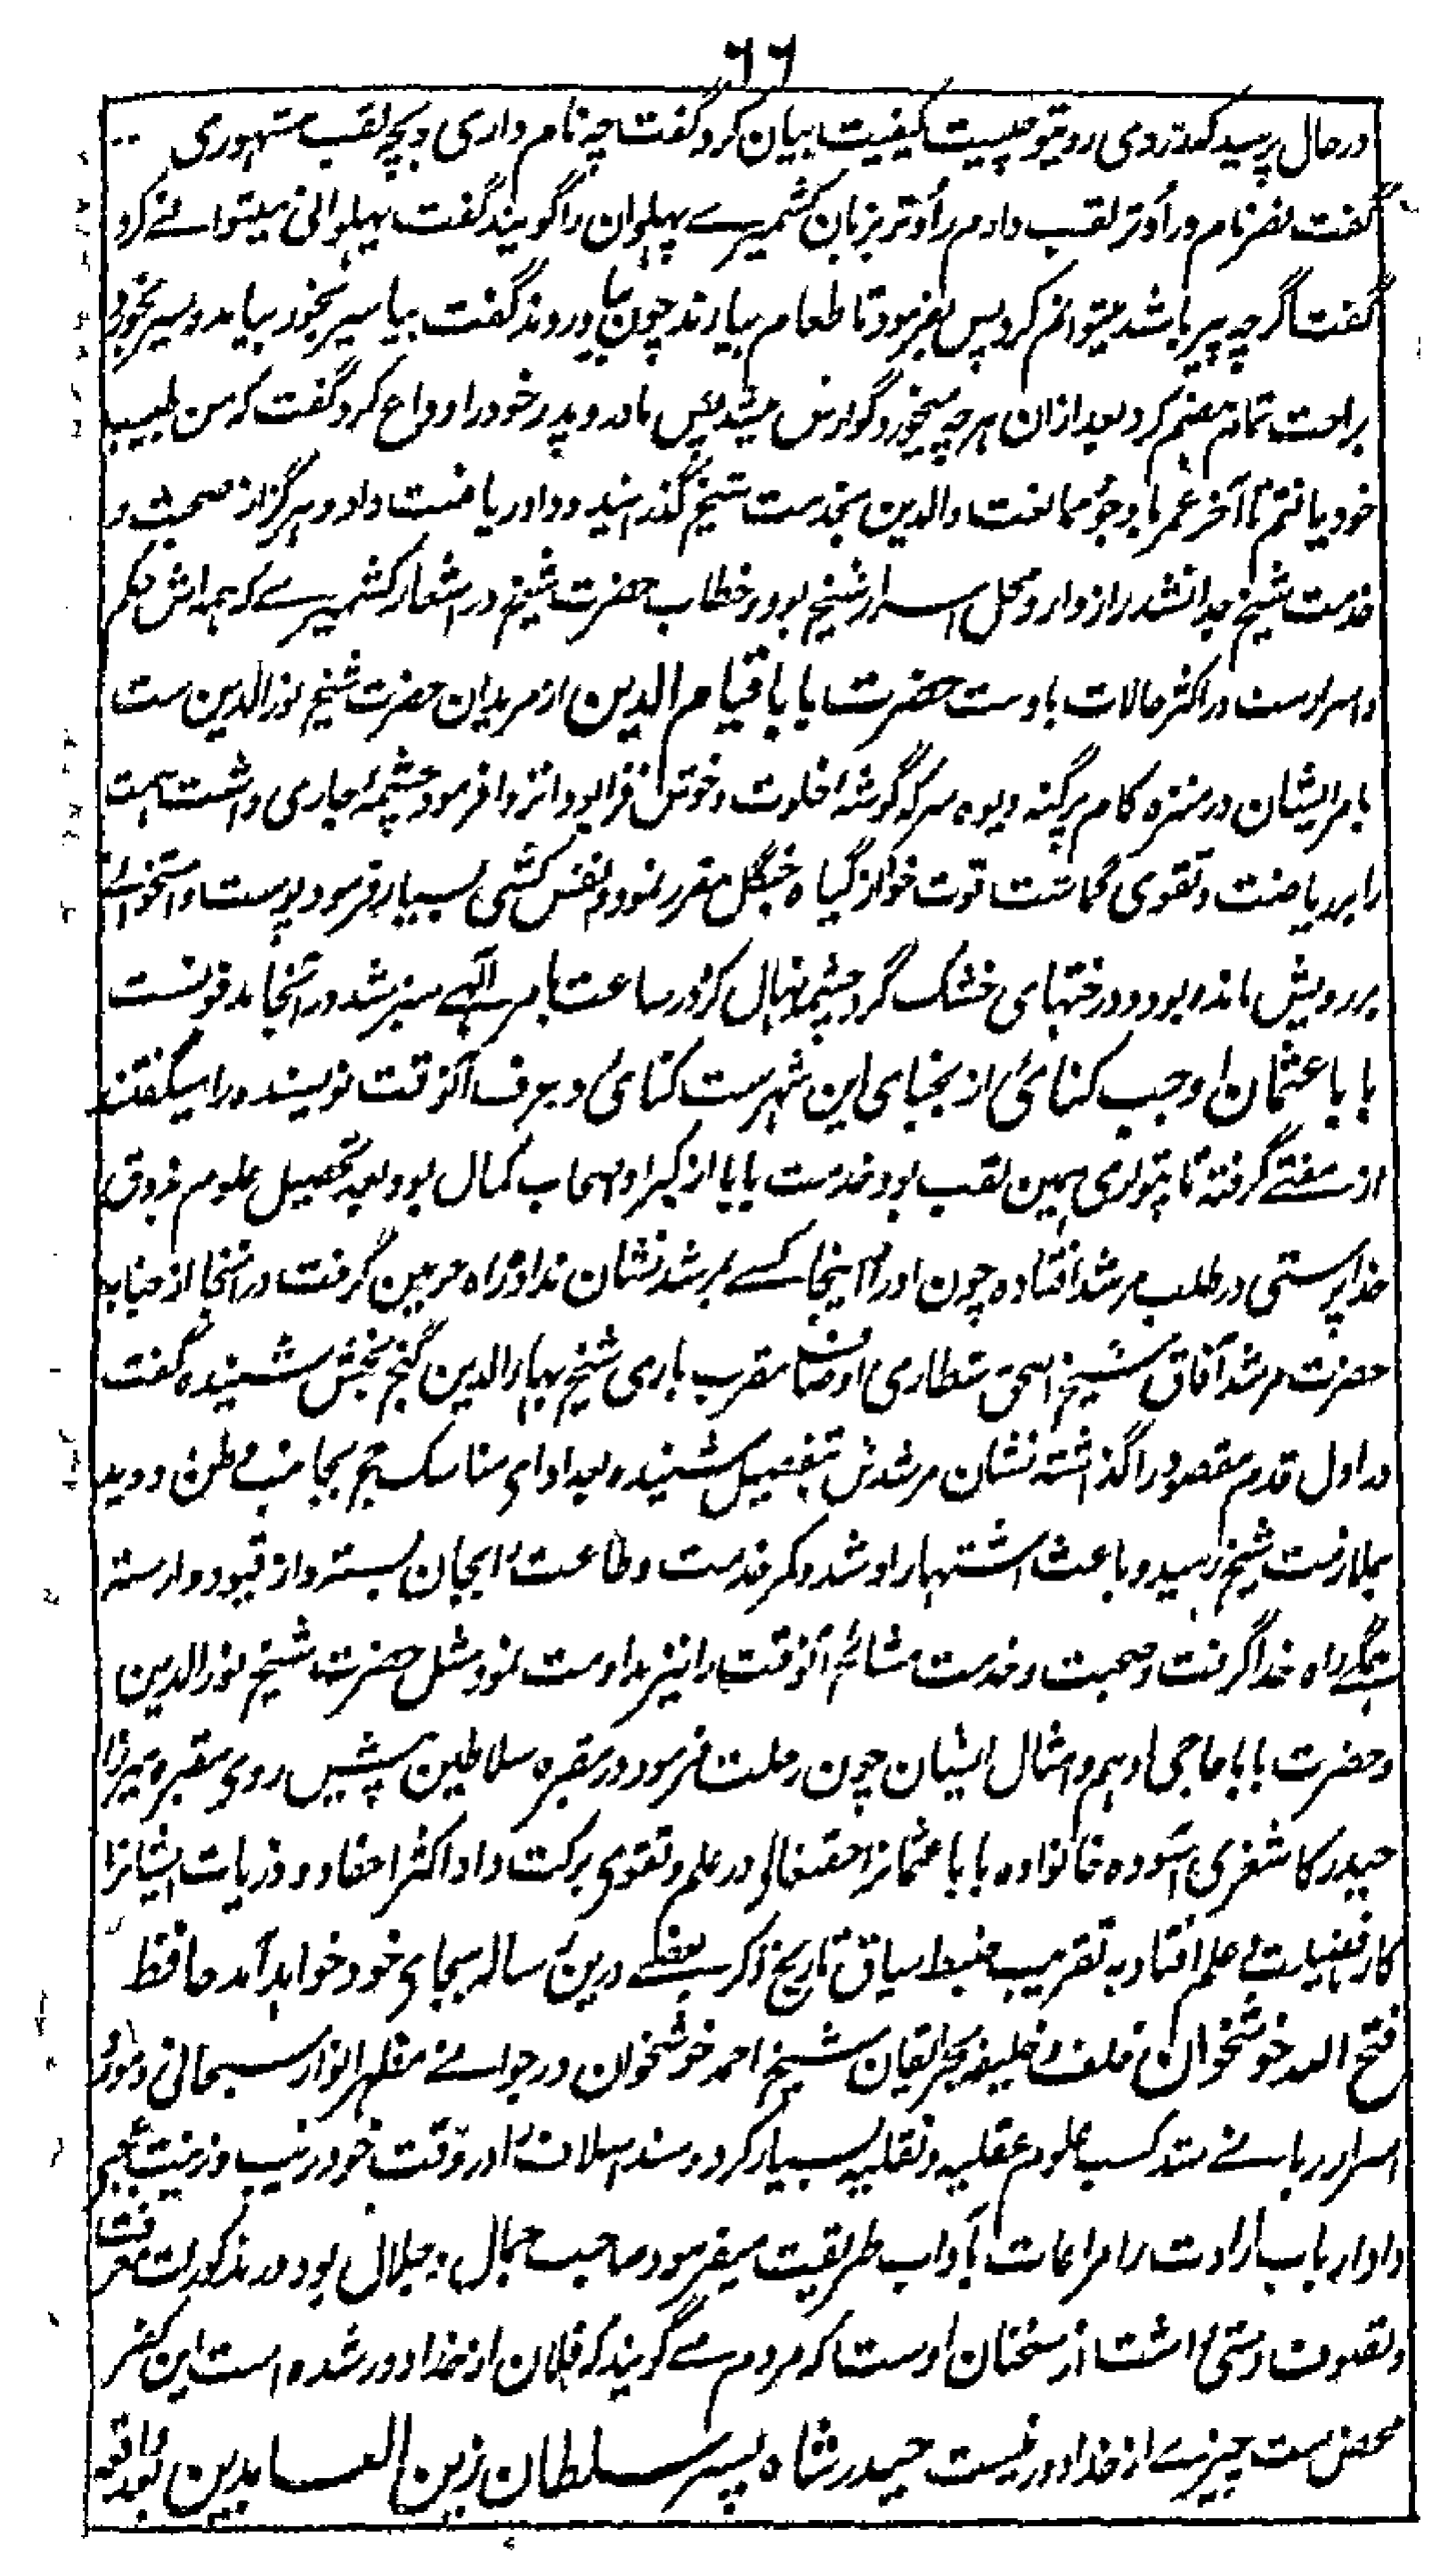 ٦٦
درحال پرسید که زردی روی تو چیست کیفیت بیان کرد گفت چه نام داری و بچه لقب مشهوری
گفت نصر نام و راوتر لقب دارم راوتر بزبان کشمیرے پهلوان را گویند گفت پهلوانی میتوانے کرد
گفت اگرچه پیر باشد میتوانم کرد پس بفرمود تا طعام بیارند چون بیاوردند گفت بیا سیر بخور بیامد و سیر بخورد
براحت تمام هضم کرد بعد ازان هرچه میخورد گوارش میشد پس مادر و پدر خود را وداع کرد گفت که من طبیب
خود یافتم تا آخر عمر با وجود ممانعت والدین بخدمت شیخ گذرانید و داد ریاضت داد و هرگز از صحبت و
خدمت شیخ جدا نشد رازدار و محل اسرار شیخ بود و خطاب حضرت شیخ در اشعار کشمیرے که همه اش حکم
و اسرارست در اکثر حالات باوست حضرت بابا قیام الدین از مریدان حضرت شیخ نورالدین ست
بامر ایشان در منزه کام پرگنه دیوه سر که گوشهٔ خلوت و خوش فزا بود انزوا فرمود چشمهٔ جاری داشت همت
را بر ریاضت و تقوی گماشت قوت خود از گیاه جنگل مقرر نمود و نفس کشی بسیار فرمود پوست و استخوانے
بر رویش مانده بود و درختهای خشک گرد چشمه نهال کرد در ساعت بامر الهے سبز شد در آنجا مدفونست
بابا عثمان اوجب کنائی از نجبای این شهرست کنائی در عرف آنوقت نویسنده را میگفتند
از مفتے گرفته تا پتواری همین لقب بود خدمت بابا از کبرا و اصحاب کمال بود بعد تحصیل علوم بذوق
خدا پرستی در طلب مرشد افتاده چون او را اینجا کسے بمرشد نشان نداد راه حرمین گرفت در آنجا از جناب
حضرت مرشد آفاق شیخ اسحق شطاری اوصاف مقرب باری شیخ بهاءالدین گنج بخش شنیده گفت
در اول قدم مقصود را گذاشته نشان مرشدش بتفصیل شنیده بعد ادای مناسک حج بجانب وطن دوید
بملازمت شیخ رسید و باعث اشتهار او شد و کمر خدمت و طاعت را بجان بسته و از قیود وارسته
بیکے راه خدا گرفت و صحبت و خدمت مشائخ آنوقت را نیز مداومت نمود مثل حضرت شیخ نورالدین
و حضرت بابا حاجی ادهم و امثال ایشان چون رحلت فرمود در مقبره سلاطین پیشین روی مقبره میرزا
حیدر کاشغری آسوده خانواده بابا عثمانرا حقتعالی در علم و تقوی برکت داد اکثر احفاد و ذریات ایشانرا
کار بفضیلت و علم افتاد به تقریب ضبط سیاق تاریخ ذکر بعضے درین رساله بجای خود خواهد آمد حافظ
فتح الله خوشخوان خلف و خلیفه شیخ احمد خوشخوان در جوانے مظهر انوار سبحانی و مورد
اسرار ربانے شد کسب علوم عقلیه و نقلیه بسیار کرد و مسند اسلاف را در وقت خود زیب و زینت عجیب
داد ارباب ارادت را مراعات آداب طریقت میفرمود صاحب جمال و جلال بود در مذکورات معرفت
و تصوف دستی داشت از سخنان اوست که مردم مے گویند که فلان از خدا دور شده است این کفر
محض ست چیزے از خدا دور نیست حیدر شاه پسر سلطان زین العابدین بعد واقعه